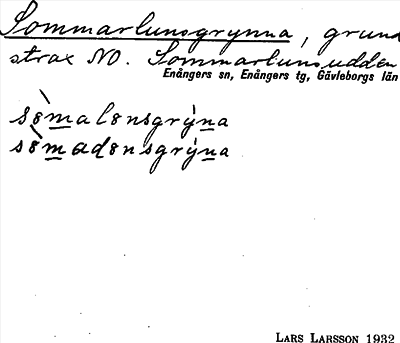 Sommarlunsgrynna, grund
strax NO. Sommarlunsudden
Enångers sn, Enångers tg, Gävleborgs län
sòmalənsgrỳna
sòmadənsgrỳna
LARS LARSSON 1932